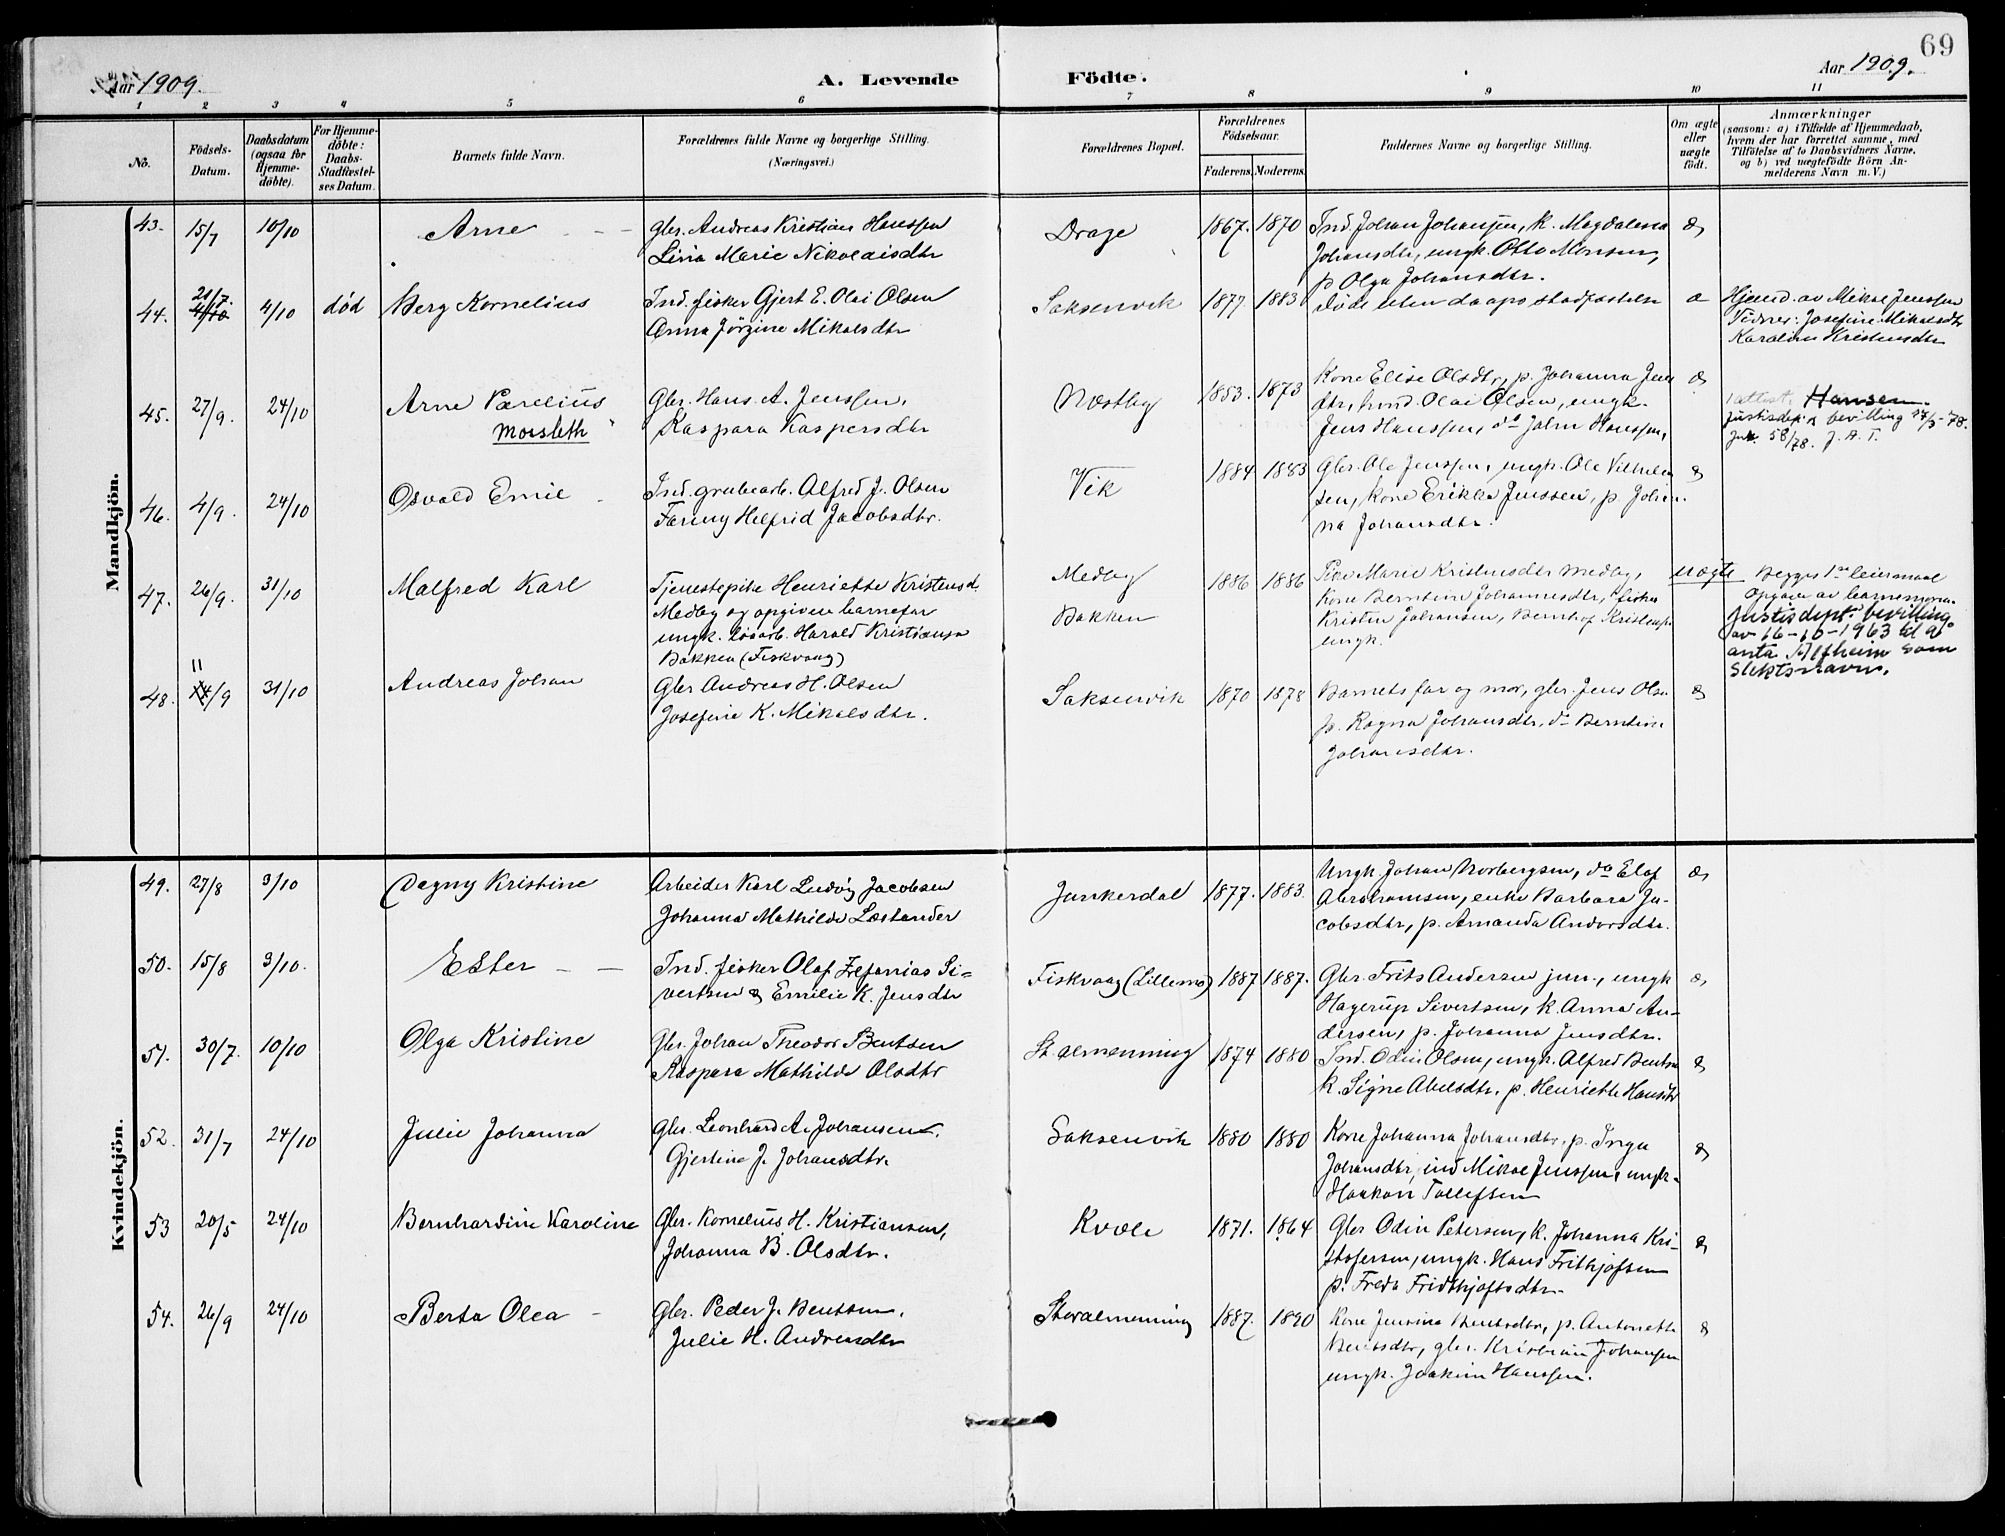 69
Aar 1909.
A. Levende Födte.
Aar 1909.
1 2 3 4 5 6 7 8 9 10 11
No.
Födsels-Datum.
Daabsdatum (ogsaa for Hjemme-döbte).
For Hjemme-döbte: Daabs-Stadfæstel-ses Datum.
Barnets fulde Navn.
Forældrenes fulde Navne og borgerlige Stilling.
(Næringsvei.)
Forældrenes Bopæl.
Forældrenes Födselsaar.
Faderens. Moderens.
Faddernes Navne og borgerlige Stilling.
Om ægte eller uægte födt.
Anmærkninger
(saasom: a) i Tilfælde af Hjemmedaab,
hvem der har forrettet samme, med
Tilföielse af to Daabsvidners Navne,
og b) ved uægtefödte Börn An-
melderens Navn m. V.)
Mandkjön.
43. 15/7 10/10 Arne
Gbr. Andreas Kristian Hanssen
Lina Marie Nikolaisdtr
Drage 1867. 1870
Ind. Johan Johansen, k. Magdalena
Johansdtr, ungk. Otto Monsen,
p. Olga Johansdtr.
44. 21/7. 4/10 død Berg Kornelius
Ind. fisker Gjert E. Olai Olsen
Anna Jörgine Mikalsdtr
Saksenvik 1877. 1883
Døde uten daaps stadfæstelse
Hjemd. av Mikal Jenssen
Vidner: Josefine Mikalsdtr
Karoline Kristensdtr
45. 27/9. 24/10 Arne Parelius
Morsleth
Gbr. Hans A. Jenssen,
Kaspara Kaspersdtr
Næstby 1853. 1873
Kone Elise Olsdtr, p. Johanna Jens
dtr, Olai Olsen, ungk.
Jens Hanssen, do John Hanssen,
Hansen.
Justisdep.s bevilling
Jnr. 58/78. J. A. T.
46. 4/9. 24/10 Osvald Emil
Ind. grubearb. Alfred J. Olsen
Fanny Helfrid Jacobsdtr.
Vik 1884 1883
Gbr. Ole Jenssen, ungk. Ole Vilhelm
sen, kone Erikka Jenssen, p. Johan
na Johansdtr.
47. 26/9. 31/10 Malfred Karl
Tjenestepike Henriette Kristensd.
Medby og opgiven barnefar
ungk. løsarb. Harald Kristiansen
Bakken (Fiskvaag)
Medby
Bakken
1886 1886
Pike Marie Kristensdtr Medby,
Kone Berntine Johannesdtr, fisker
Kristen Johansen, Bernhof Kristensen
ungk.
uægte
Begges 1ste leiermaal
Opgave av barnemoren.
Justisdept.s bevilling
av 16-10-1963 til å
anta Alfheim som
slektsnavn.
48. 11/9 31/10 Andreas Johan
Gbr Andreas H. Olsen
Josefine K. Mikalsdtr.
Saksenvik 1870 1878
Barnets far og mor, gbr. Jens Olsen
p. Ragna Johansdtr, do Berntine
Johansdtr.
Kvindekjön.
49. 27/8 3/10 Dagny Kristine
Arbeider Karl Ludvig Jacobsen
Johanna Mathilde Læstander
Junkerdal 1877. 1883.
Ungk. Johan Norbergsen, do Elof
Abrahamsen, enke Barbara Ja-
cobsdtr, p. Amanda Andorsdtr.
50. 15/8 3/10. Ester
Ind. fisker Olaf Zefanias Si-
vertsen & Emilie K. Jensdtr
Fiskvaag (Lillemo) 1887 1887.
Gbr. Frits Andersen jun., ungk
Hagerup Sivertsen, k. Anna An-
dersen, p. Johanna Jensdtr.
51. 30/7. 10/10 Olga Kristine
Gbr. Johan Theodor Bentsen
Kaspara Mathilde Olsdtr
St.almenning 1874 1880
Ind. Odin Olsen, ungk. Alfred Bentsen
k. Signe Abelsdtr, p. Henriette Hansdtr
52. 31/7 24/10 Julie Johanna
Gbr. Leonhard A. Johansen,
Gjertine J. Johansdtr.
Saksenvik 1880 1880
Kone Johanna Johansdtr, p. Inga
Johansdtr, ind Mikal Jenssen, ungk.
Haakon Tollefsen
53 20/5 24/10 Bernhardine Karoline
Gbr. Kornelius H. Kristiansen,
Johanna B. Olsdtr.
Kvæle 1871. 1864
Gbr Odin Petersen, k. Johanna Kri-
stofersen, ungk. Hans Frithjofsen
p. Freda Fridthjofsdtr.
54. 26/9 24/10 Berta Olea
Gbr. Peder J. Bentsen,
Julie H. Andreasdtr
Storalmenning 1887. 1890
Kone Jensina Bentsdtr, p. Antonette
Bentsdtr, gbr. Kristian Johansen
ungk. Joakim Hanssen.